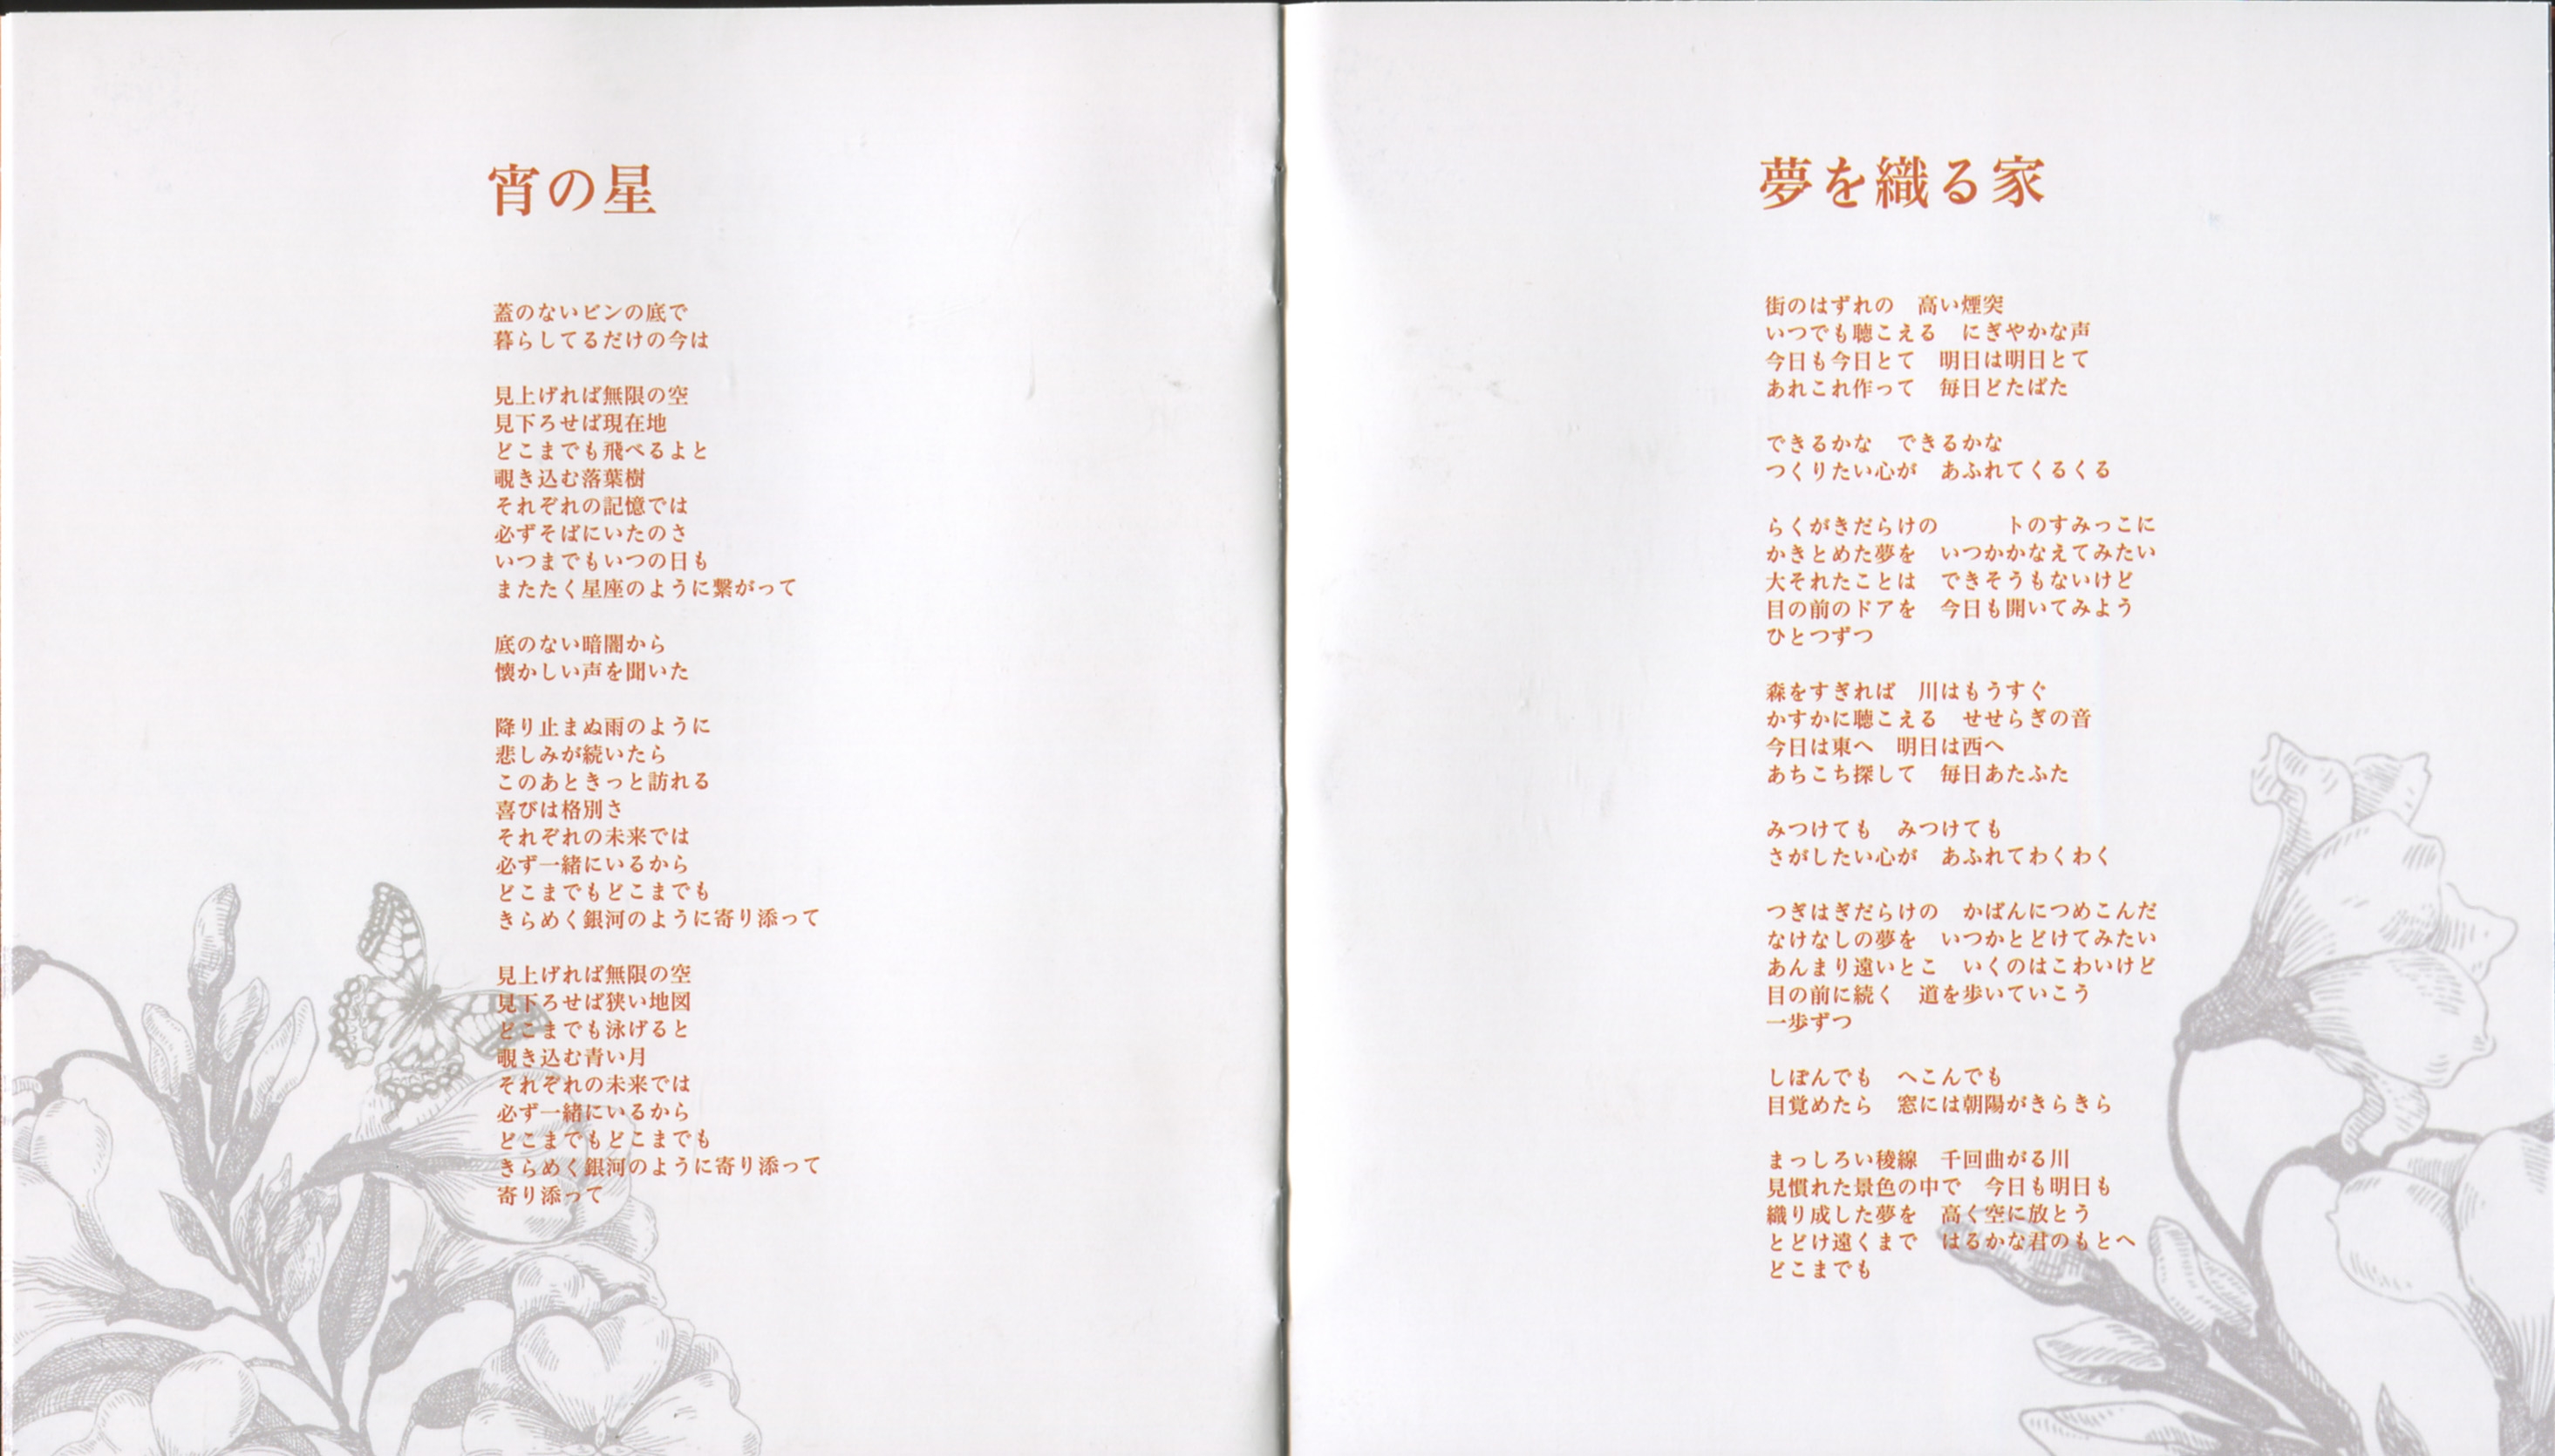 宵の星
蓋のないビンの底で
暮らしてるだけの今は
見上げれば無限の空
見下ろせば現在地
どこまでも飛べるよと
覗き込む落葉樹
それぞれの記憶では
必ずそばにいたのさ
いつまでもいつの日も
またたく星座のように繋がって
底のない暗闇から
懐かしい声を聞いた
降り止まぬ雨のように
悲しみが続いたら
このあときっと訪れる
喜びは格別さ
それぞれの未来では
必ず一緒にいるから
どこまでもどこまでも
きらめく銀河のように寄り添って
見上げれば無限の空
見下ろせば狭い地図
どこまでも泳げると
覗き込む青い月
それぞれの未来では
必ず一緒にいるから
どこまでもどこまでも
きらめく銀河のように寄り添って
寄り添って
夢を織る家
街のはずれの　高い煙突
いつでも聴こえる　にぎやかな声
今日も今日とて　明日は明日とて
あれこれ作って　毎日どたばた
できるかな　できるかな
つくりたい心が　あふれてくるくる
らくがきだらけの　　　トのすみっこに
かきとめた夢を　いつかかなえてみたい
大それたことは　できそうもないけど
目の前のドアを　今日も開いてみよう
ひとつずつ
森をすぎれば　川はもうすぐ
かすかに聴こえる　せせらぎの音
今日は東へ　明日は西へ
あちこち探して　毎日あたふた
みつけても　みつけても
さがしたい心が　あふれてわくわく
つぎはぎだらけの　かばんにつめこんだ
なけなしの夢を　いつかとどけてみたい
あんまり遠いとこ　いくのはこわいけど
目の前に続く　道を歩いていこう
一歩ずつ
しぼんでも　へこんでも
目覚めたら　窓には朝陽がきらきら
まっしろい稜線　千回曲がる川
見慣れた景色の中で　今日も明日も
織り成した夢を　高く空に放とう
とどけ遠くまで　はるかな君のもとへ
どこまでも